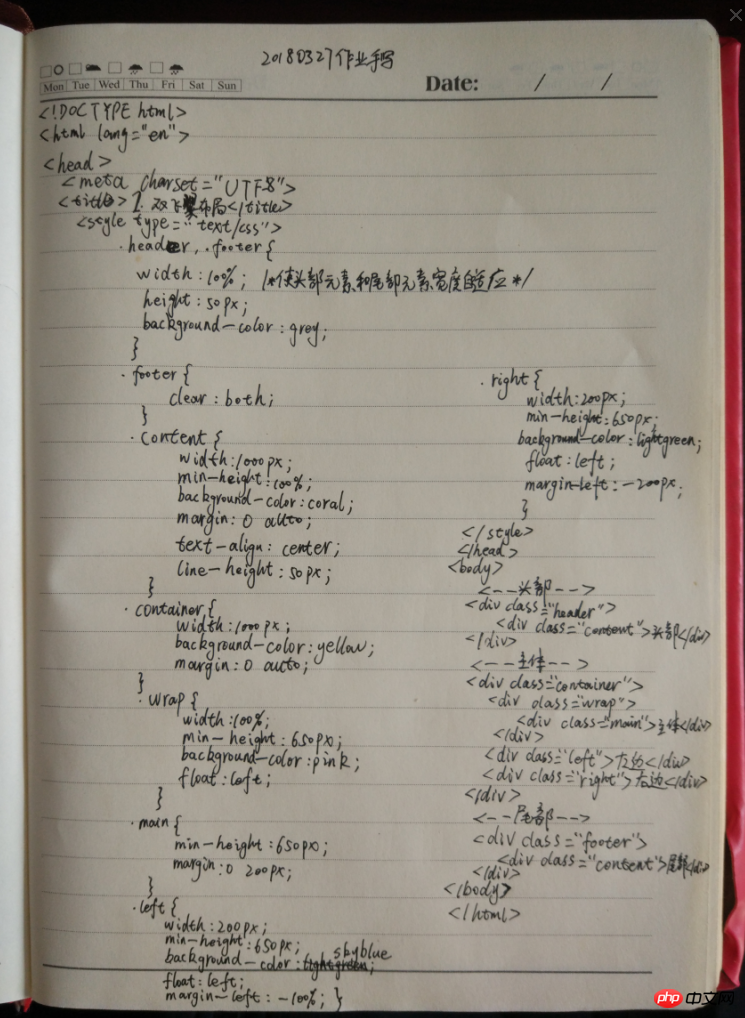 20180327作业手写
Mon Tue Wed Thu Fri Sat Sun
Date: / /
<!DOCTYPE html>
<html lang="en">
<head>
<meta charset="UTF-8">
<title>1. 双飞翼布局</title>
<style type="text/css">
.header, .footer{
width:100%; /*使头部元素和尾部元素宽度自适应*/
height:50px;
background-color:grey;
}
.footer{
clear:both;
}
.content{
width:1000px;
min-height:100%;
background-color:coral;
margin:0 auto;
text-align:center;
line-height:50px;
}
.container{
width:1000px;
background-color:yellow;
margin:0 auto;
}
.wrap{
width:100%;
min-height:650px;
background-color:pink;
float:left;
}
.main{
min-height:650px;
margin:0 200px;
}
.left{
width:200px;
min-height:650px;
background-color:skyblue;
float:left;
margin-left:-100%; }
.right{
width:200px;
min-height:650px;
background-color:lightgreen;
float:left;
margin-left:-200px;
}
</style>
</head>
<body>
<---头部--->
<div class="header">
<div class="content">头部</div>
</div>
<---主体--->
<div class="container">
<div class="wrap">
<div class="main">主体</div>
</div>
<div class="left">左边</div>
<div class="right">右边</div>
</div>
<---尾部--->
<div class="footer">
<div class="content">尾部</div>
</div>
</body>
</html>
php 中文网